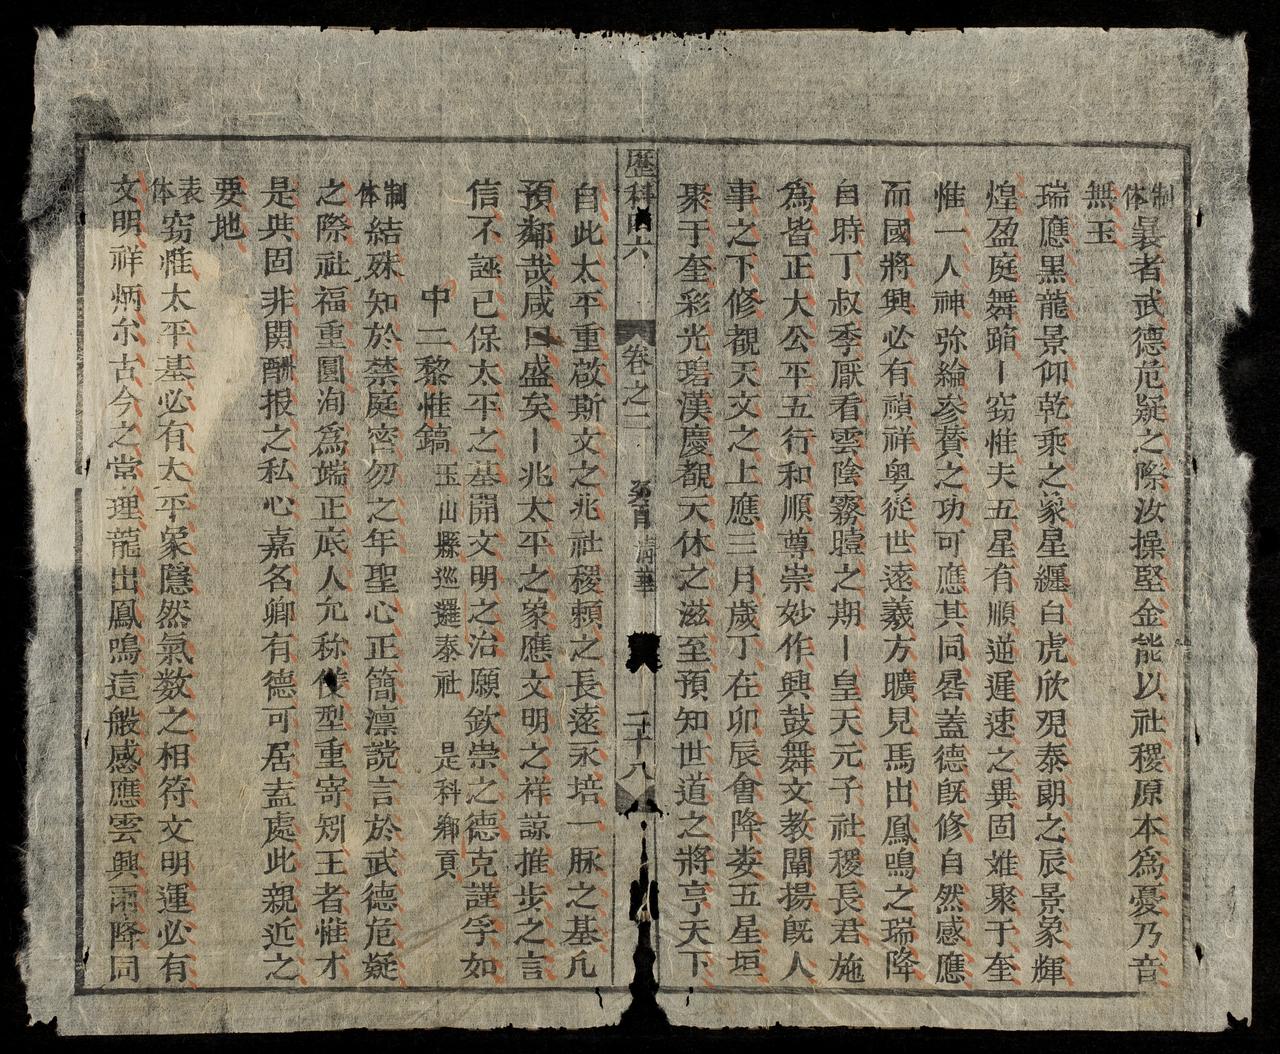 制体曩者武德危疑之際汝操堅金能以社稷原本為憂乃音
無玉
瑞應黒龍景仰乾乘之象星纏白虎欣覌泰朗之辰景象輝
煌盈庭舞蹈〡窃惟夫五星有順逆遲速之異固难聚于奎
惟一人神弥綸参賛之功可應其同晷盖德既修自然感應
而國將興必有禎祥粤從世遠羲方曠見馬出鳳鳴之瑞降
自時丁叔季厭看雲陰霧曀之期〡皇天元子社稷長君施
為皆正大公平五行和順尊崇妙作興鼓舞文教闡揚既人
事之下修觀天文之上應三月歲丁在卯辰會降娄五星垣
聚于奎彩光珺漢慶覩天休之滋至預知世道之將亨天下
歷科 六
卷之二
清華
二十八
自此太平重啟斯文之兆社稷頼之長遠永培一脉之基凡
預鄰哉咸曰盛矣〡兆太平之象應文明之祥諒推步之言
信不誣已保太平之基開文明之治願欽崇之德克謹孚如
中二黎惟鎬 玉山縣巡邏泰社 是科鄉貢
制体結殊知於禁庭密勿之年聖心正簡凛說言於武德危疑
之際社福重圓洵為端正底人允称俊型重寄矧王者惟才
是㐀固非関酬报之私心嘉名卿有德可居盍處此親近之
要地
表体窃惟太平基必有太平象隱然氣数之相符文明運必有
文明祥炳尔古今之常理龍出鳳鳴這般感應雲興雨降同